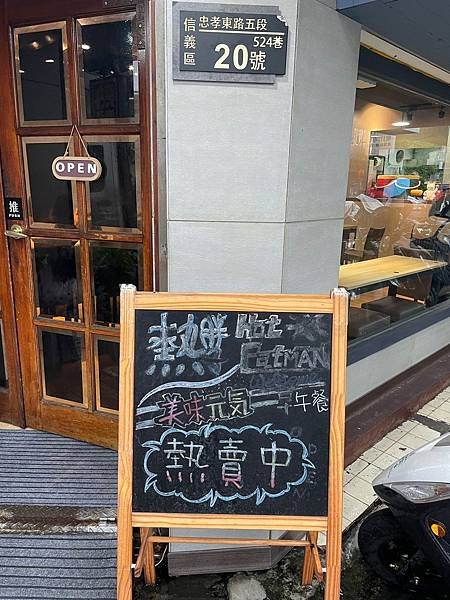 信義區
忠孝東路五段
524巷
20號
OPEN
推
PUSH
熱
Hot
EatMAN
美味元気
午餐
熱賣中